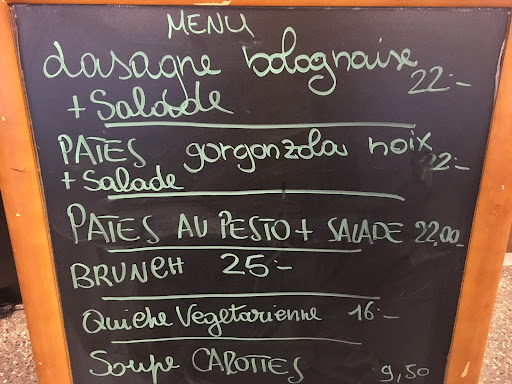 MENU
Lasagne bolognaise 22.-
+ Salade
PATES gorgonzola noix 22.-
+ Salade
PATES AU PESTO + SALADE 22,00
BRUNCH 25.-
Quiche Vegetarienne 16.-
Soupe CAROTTES 9,50